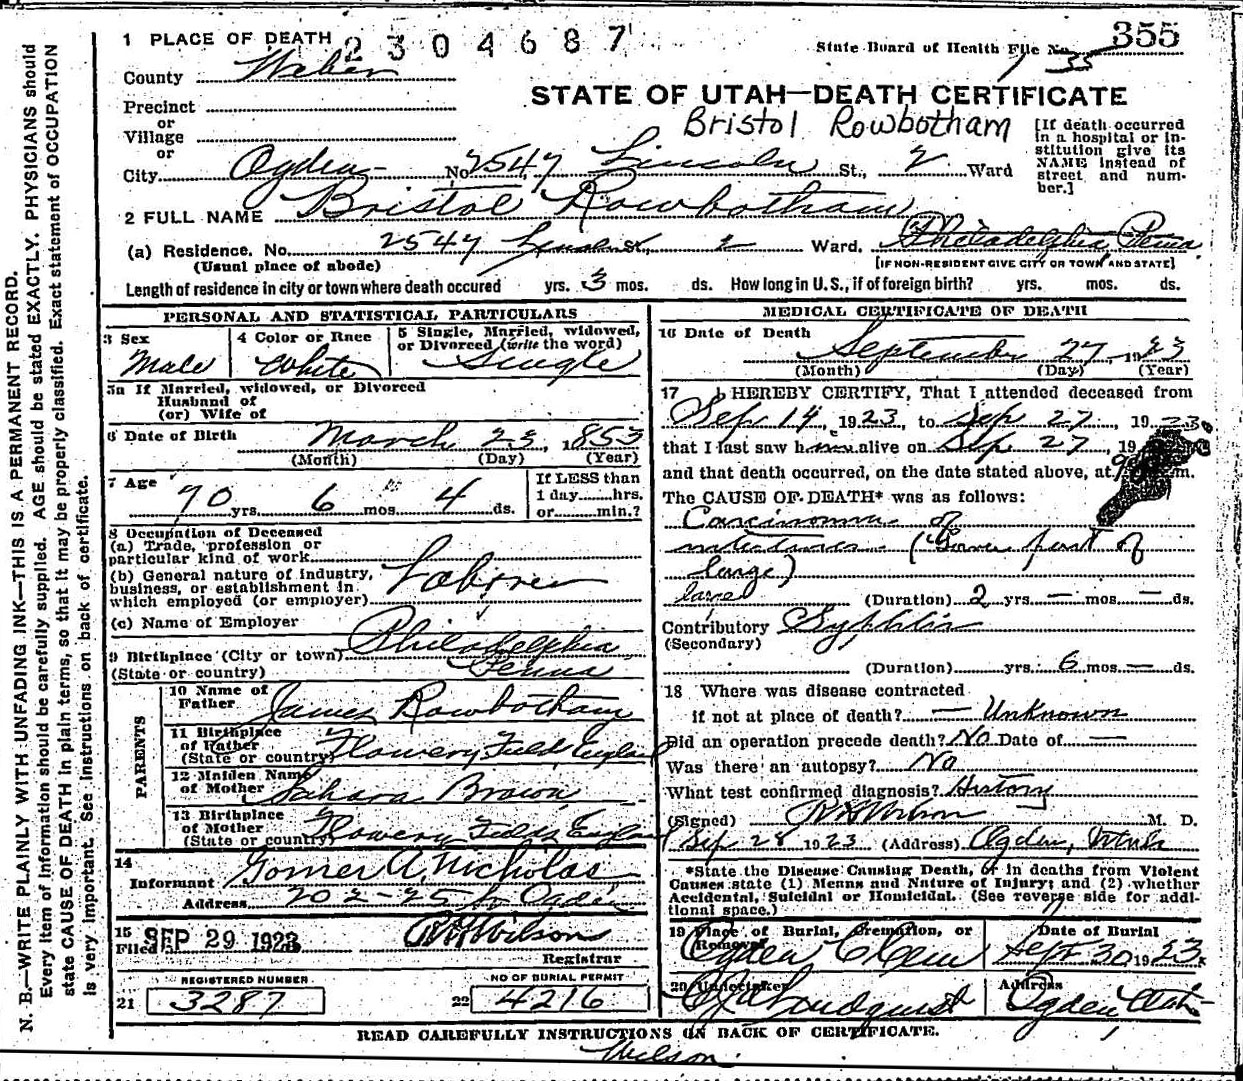 1 PLACE OF DEATH 2304687
State Board of Health File No. 355
County Weber
1 35
Precinct
or
Village
or
STATE OF UTAH—DEATH CERTIFICATE
Bristol Rowbotham
[If death occurred in a hospital or institution give its NAME instead of street and number.]
City Ogden No 2547 Lincoln St., 2 Ward
2 FULL NAME Bristol Rowbotham
(a) Residence. No. 2547 St. 2 Ward. Philadelphia Penna
(Usual place of abode) [IF NON-RESIDENT GIVE CITY OR TOWN AND STATE]
Length of residence in city or town where death occured yrs. 3 mos. ds. How long in U.S., if of foreign birth? yrs. mos. ds.
PERSONAL AND STATISTICAL PARTICULARS
3 Sex Male
4 Color or Race White
5 Single, Married, widowed, or Divorced (write the word) Single
5a If Married, widowed, or Divorced
Husband of
(or) Wife of
6 Date of Birth March 23, 1853
(Month) (Day) (Year)
7 Age 70 yrs. 6 mos. 4 ds.
If LESS than
1 day hrs.
or min.?
8 Occupation of Deceased
(a) Trade, profession or
particular kind of work
(b) General nature of industry,
business, or establishment in
which employed (or employer) Laborer
(c) Name of Employer
9 Birthplace (City or town) Philadelphia
(State or country) Penna
PARENTS
10 Name of Father James Rowbotham
11 Birthplace of Father (State or country) Flowery Field, England
12 Maiden Name of Mother Sahara Brown
13 Birthplace of Mother (State or country) Flowery Fields, England
14
Informant Gomer A. Nicholas
Address 202-25 St Ogden
15
Filed SEP 29 1923 RH Wilson
Registrar
REGISTERED NUMBER
21 3287
NO OF BURIAL PERMIT
22 4216
MEDICAL CERTIFICATE OF DEATH
16 Date of Death
September 27, 1923
(Month) (Day) (Year)
17 I HEREBY CERTIFY, That I attended deceased from
Sep 14 1923, to Sep 27, 1923
that I last saw him alive on Sep 27, 19
and that death occurred, on the date stated above, at m.
The CAUSE OF DEATH* was as follows:
Carcinoma of
intestines (Lower part of
large)
(Duration) 2 yrs. — mos. — ds.
Contributory Syphlis
(Secondary)
(Duration) yrs. 6 mos. — ds.
18 Where was disease contracted
if not at place of death? — Unknown
Did an operation precede death? No Date of —
Was there an autopsy? No
What test confirmed diagnosis? History
(Signed) RH Wilson M. D.
Sep 28 1923 (Address) Ogden, Utah
*State the Disease Causing Death, or in deaths from Violent
Causes state (1) Means and Nature of Injury; and (2) whether
Accidental, Suicidal or Homicidal. (See reverse side for addi-
tional space.)
19 Place of Burial, Cremation, or Removal Ogden Cem
Date of Burial Sept 30 1923
20 Undertaker Lindquist
Address Ogden, Utah
READ CAREFULLY INSTRUCTIONS ON BACK OF CERTIFICATE.
Wilson
N. B.—WRITE PLAINLY WITH UNFADING INK—THIS IS A PERMANENT RECORD.
Every item of information should be carefully supplied. AGE should be stated EXACTLY. PHYSICIANS should
state CAUSE OF DEATH in plain terms, so that it may be properly classified. Exact statement of OCCUPATION
is very important. See instructions on back of certificate.